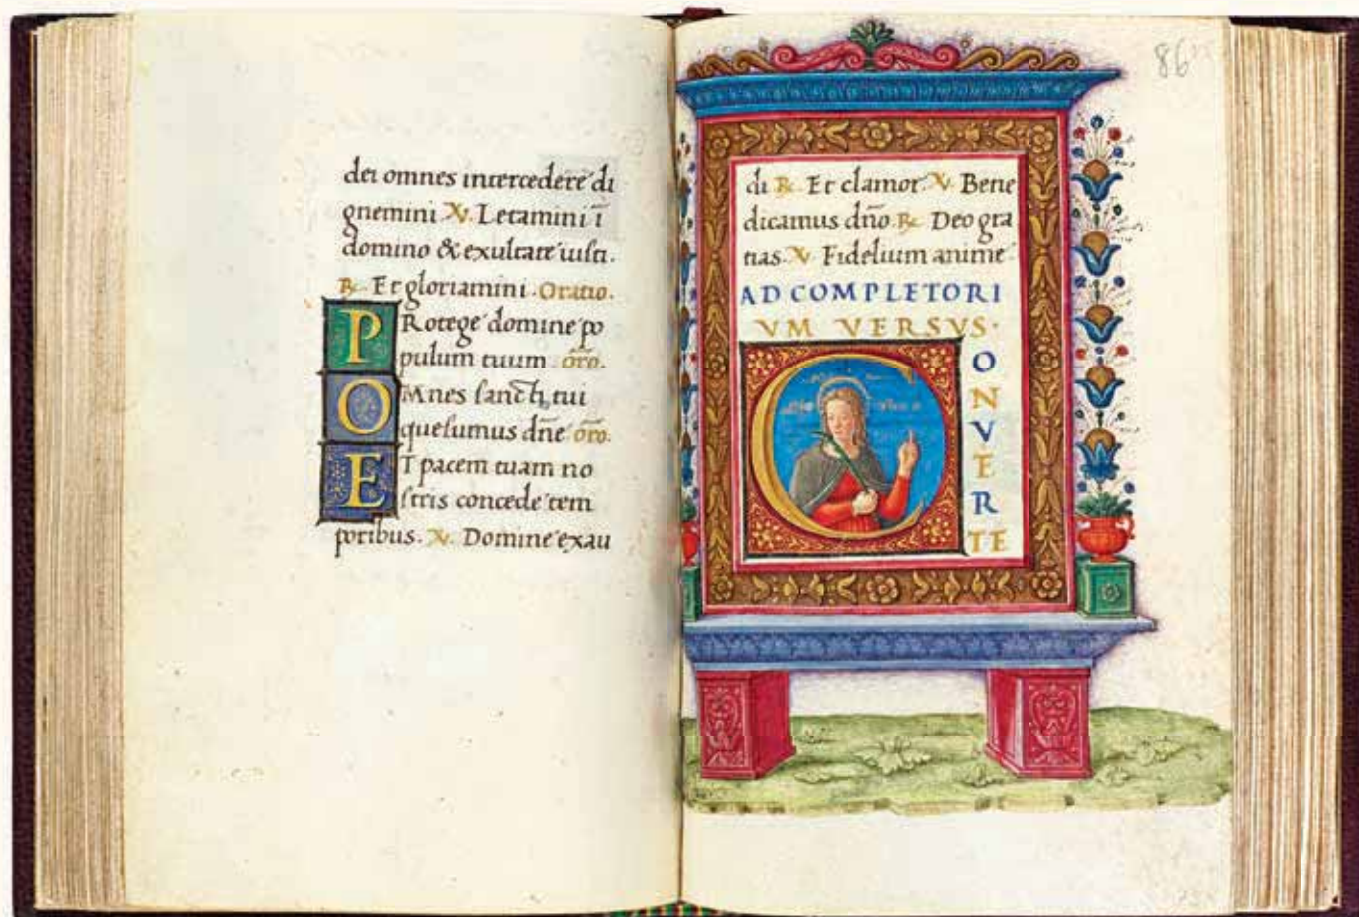 dei omnes intercedere di
gnemini ℣. Letamini ī
domino & exultate iusti.
℟. Et gloriamini. Oratio.
PRotege domine po
pulum tuum. oīo.
OMnes sancti tui
quesumus dn̄e oīo.
ET pacem tuam no
stris concede tem
poribus. ℣. Domine exau
86
di ℟. Et clamor. ℣. Bene
dicamus dn̄o. ℟. Deo gra
tias. ℣. Fidelium anime
AD COMPLETORI
VM VERSVS.
CONVERTE